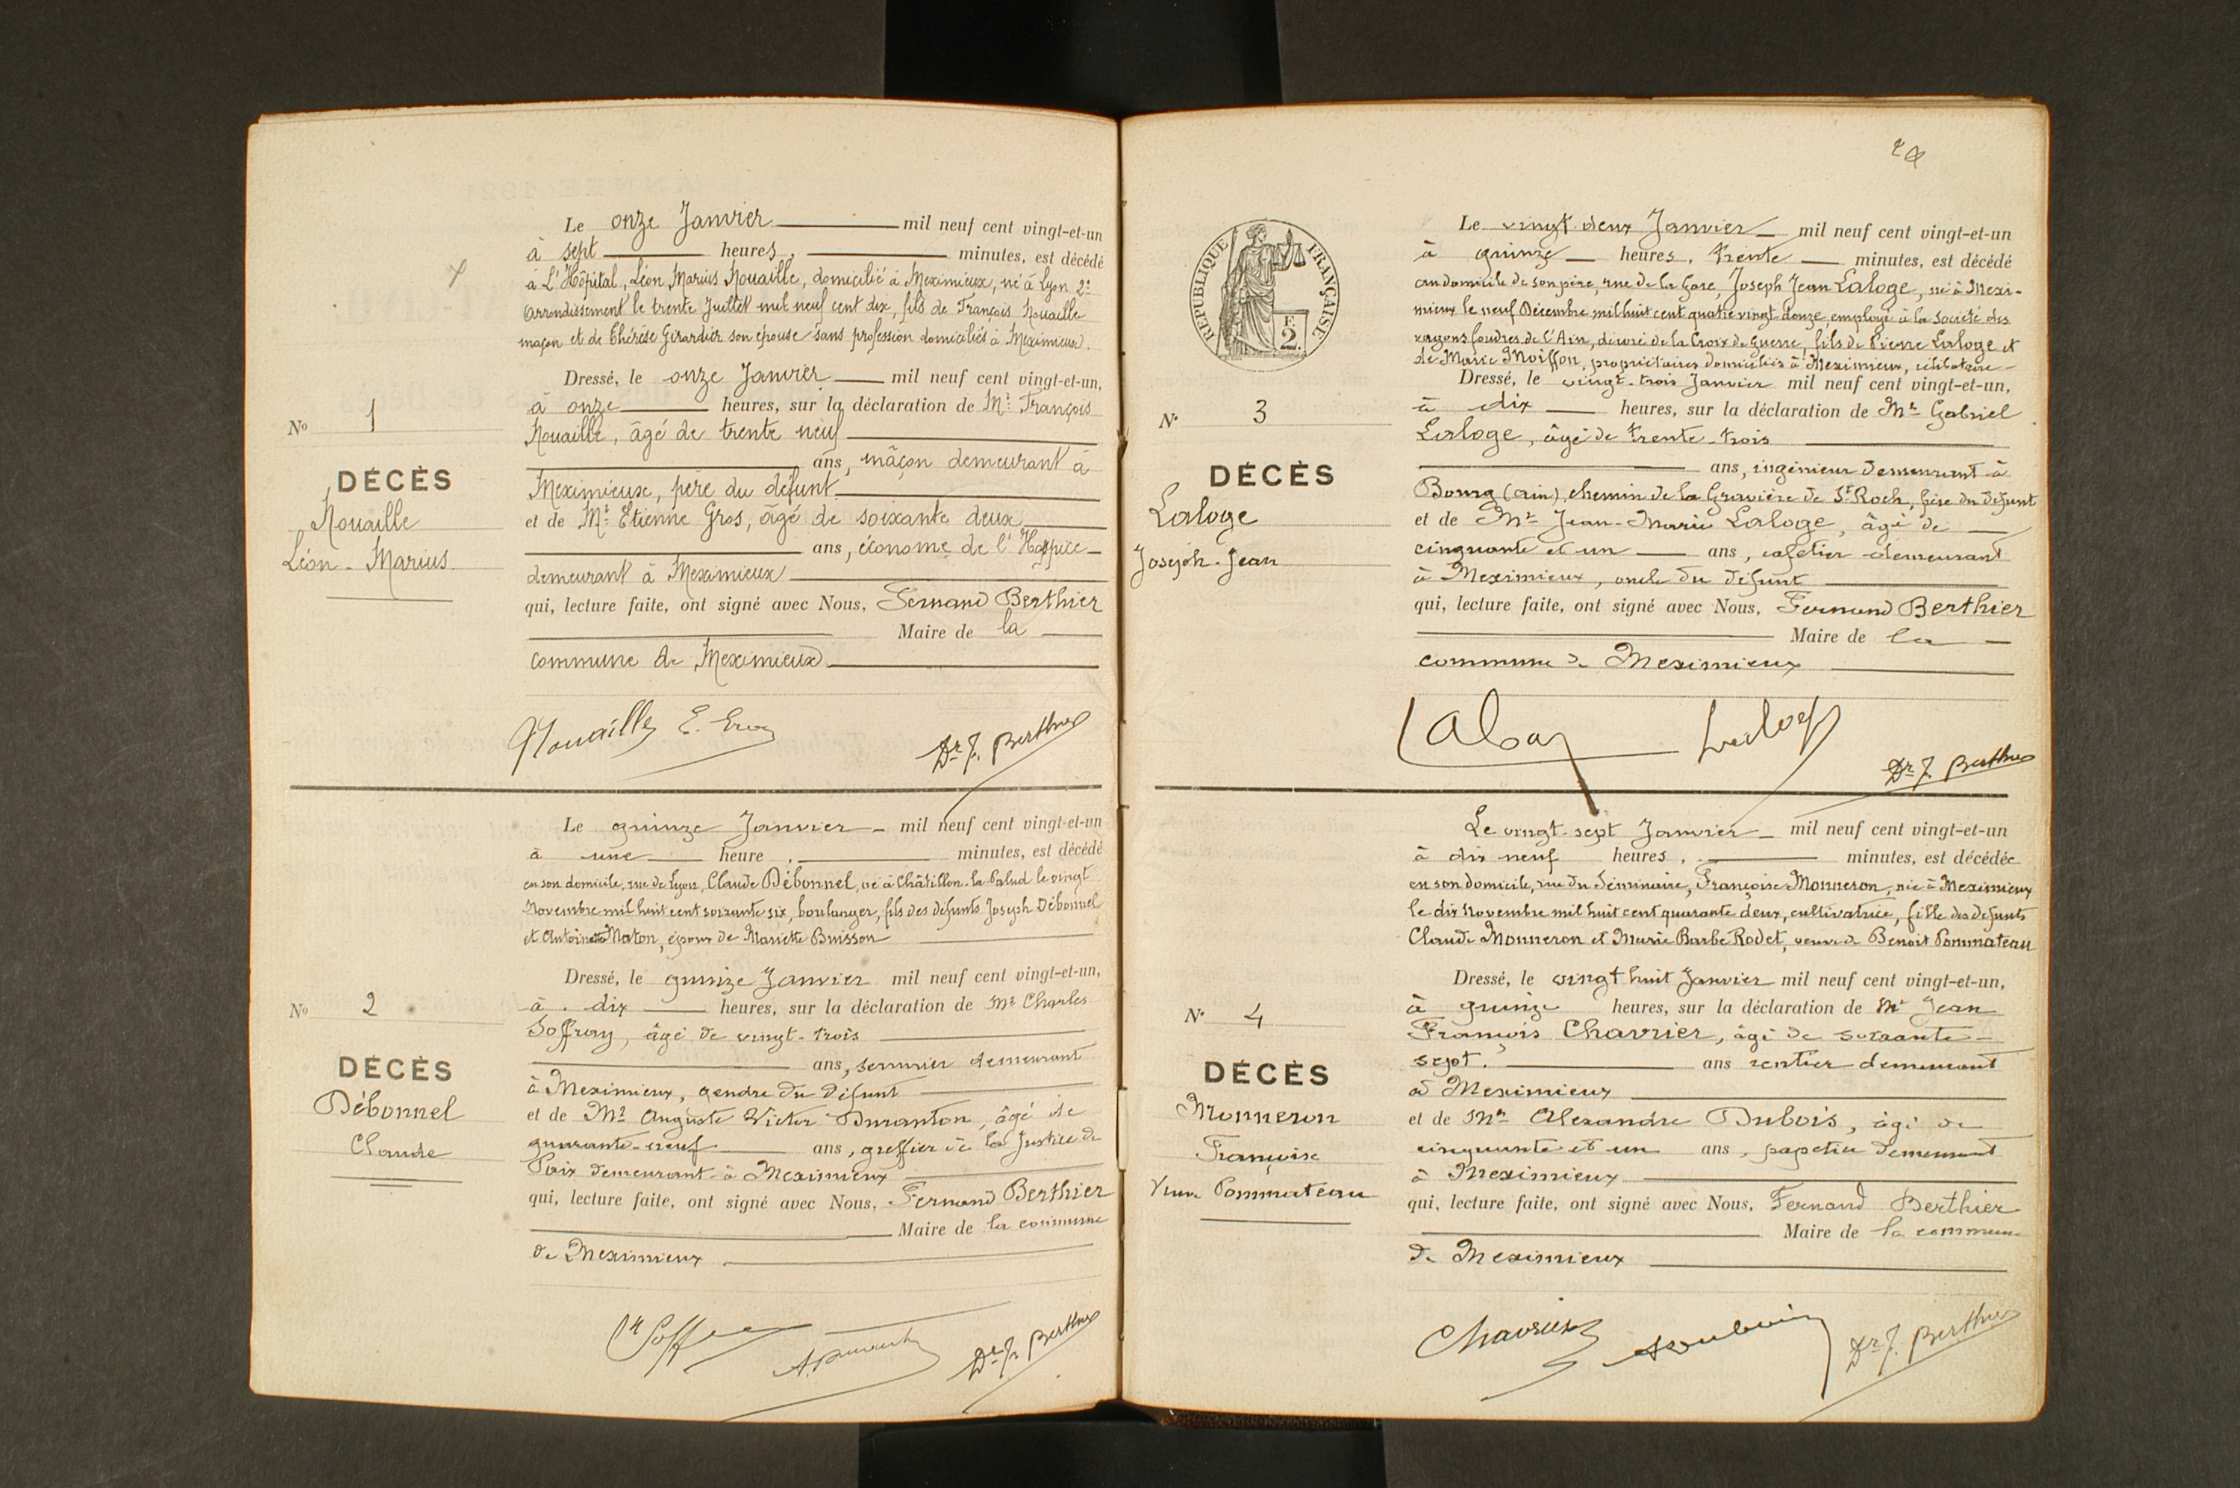 Le onze Janvier mil neuf cent vingt-et-un
à sept heures, minutes, est décédé
à L'Hôpital, Léon Marius Nouaille, domicilié à Meximieux, né à Lyon 2e
Arrondissement le trente Juillet mil neuf cent dix, fils de François Nouaille
maçon et de Thérèse Girardier son épouse sans profession domiciliés à Meximieux.
Dressé, le onze Janvier mil neuf cent vingt-et-un,
à onze heures, sur la déclaration de Mr François
Nouaille, âgé de trente neuf
ans, mâçon demeurant à
Meximieux, père du défunt
et de Mr Etienne Gros, âgé de soixante deux
ans, économe de l'Hospice
demeurant à Meximieux
qui, lecture faite, ont signé avec Nous, Fernand Berthier
Maire de la
commune de Meximieux
No 1
DÉCÈS
Nouaille
Léon-Marius
Nouaille E. Gros Dr F. Berthier
Le quinze Janvier mil neuf cent vingt-et-un
à une heure, minutes, est décédé
en son domicile, rue de Lyon, Claude Débonnel, né à Châtillon-la-Palud le vingt
Novembre mil huit cent soixante six, boulanger, fils des défunts Joseph Débonnel
et Antoinette Maton, époux de Mariette Buisson
Dressé, le quinze Janvier mil neuf cent vingt-et-un,
à dix heures, sur la déclaration de Mr Charles
Soffroy, âgé de vingt-trois
ans, serrurier demeurant
à Meximieux, gendre du défunt
et de Mr Auguste Victor Duranton, âgé de
quarante-neuf ans, greffier de la Justice de
Paix demeurant à Meximieux
qui, lecture faite, ont signé avec Nous, Fernand Berthier
Maire de la commune
de Meximieux
No 2
DÉCÈS
Débonnel
Claude
Dr F. Berthier
RÉPUBLIQUE FRANÇAISE
F. 2.
Le vingt-deux Janvier mil neuf cent vingt-et-un
à quinze heures, trente minutes, est décédé
au domicile de son père, rue de la Gare, Joseph Jean Laloge, né à Mexi-
mieux le neuf Décembre mil huit cent quatre vingt douze, employé à la Société des
wagons foudres de l'Ain, décoré de la Croix de Guerre, fils de Pierre Laloge et
de Marie Moiffon, propriétaires domiciliés à Meximieux, célibataire
Dressé, le vingt-trois Janvier mil neuf cent vingt-et-un,
à dix heures, sur la déclaration de Mr Gabriel
Laloge, âgé de trente-trois
ans, ingénieur demeurant à
Bourg (Ain), chemin de la Gravière de St Roch, frère du défunt
et de Mr Jean-Marie Laloge, âgé de
cinquante et un ans, cafetier demeurant
à Meximieux, oncle du défunt
qui, lecture faite, ont signé avec Nous, Fernand Berthier
Maire de la
commune de Meximieux
No 3
DÉCÈS
Laloge
Joseph-Jean
Laloge Dr F. Berthier
Le vingt-sept Janvier mil neuf cent vingt-et-un
à dix neuf heures, minutes, est décédée
en son domicile, rue du Séminaire, Françoise Monneron, née à Meximieux
le dix Novembre mil huit cent quarante deux, cultivatrice, fille des défunts
Claude Monneron et Marie Barbe Rodet, veuve de Benoit Pommateau
Dressé, le vingt huit Janvier mil neuf cent vingt-et-un,
à quinze heures, sur la déclaration de Mr Jean
François Chavrier, âgé de soixante-
sept ans rentier demeurant
à Meximieux
et de Mr Alexandre Dubois, âgé de
cinquante et un ans, papetier demeurant
à Meximieux
qui, lecture faite, ont signé avec Nous, Fernand Berthier
Maire de la commune
de Meximieux
No 4
DÉCÈS
Monneron
Françoise
Veuve Pommateau
Chavrier Dr F. Berthier